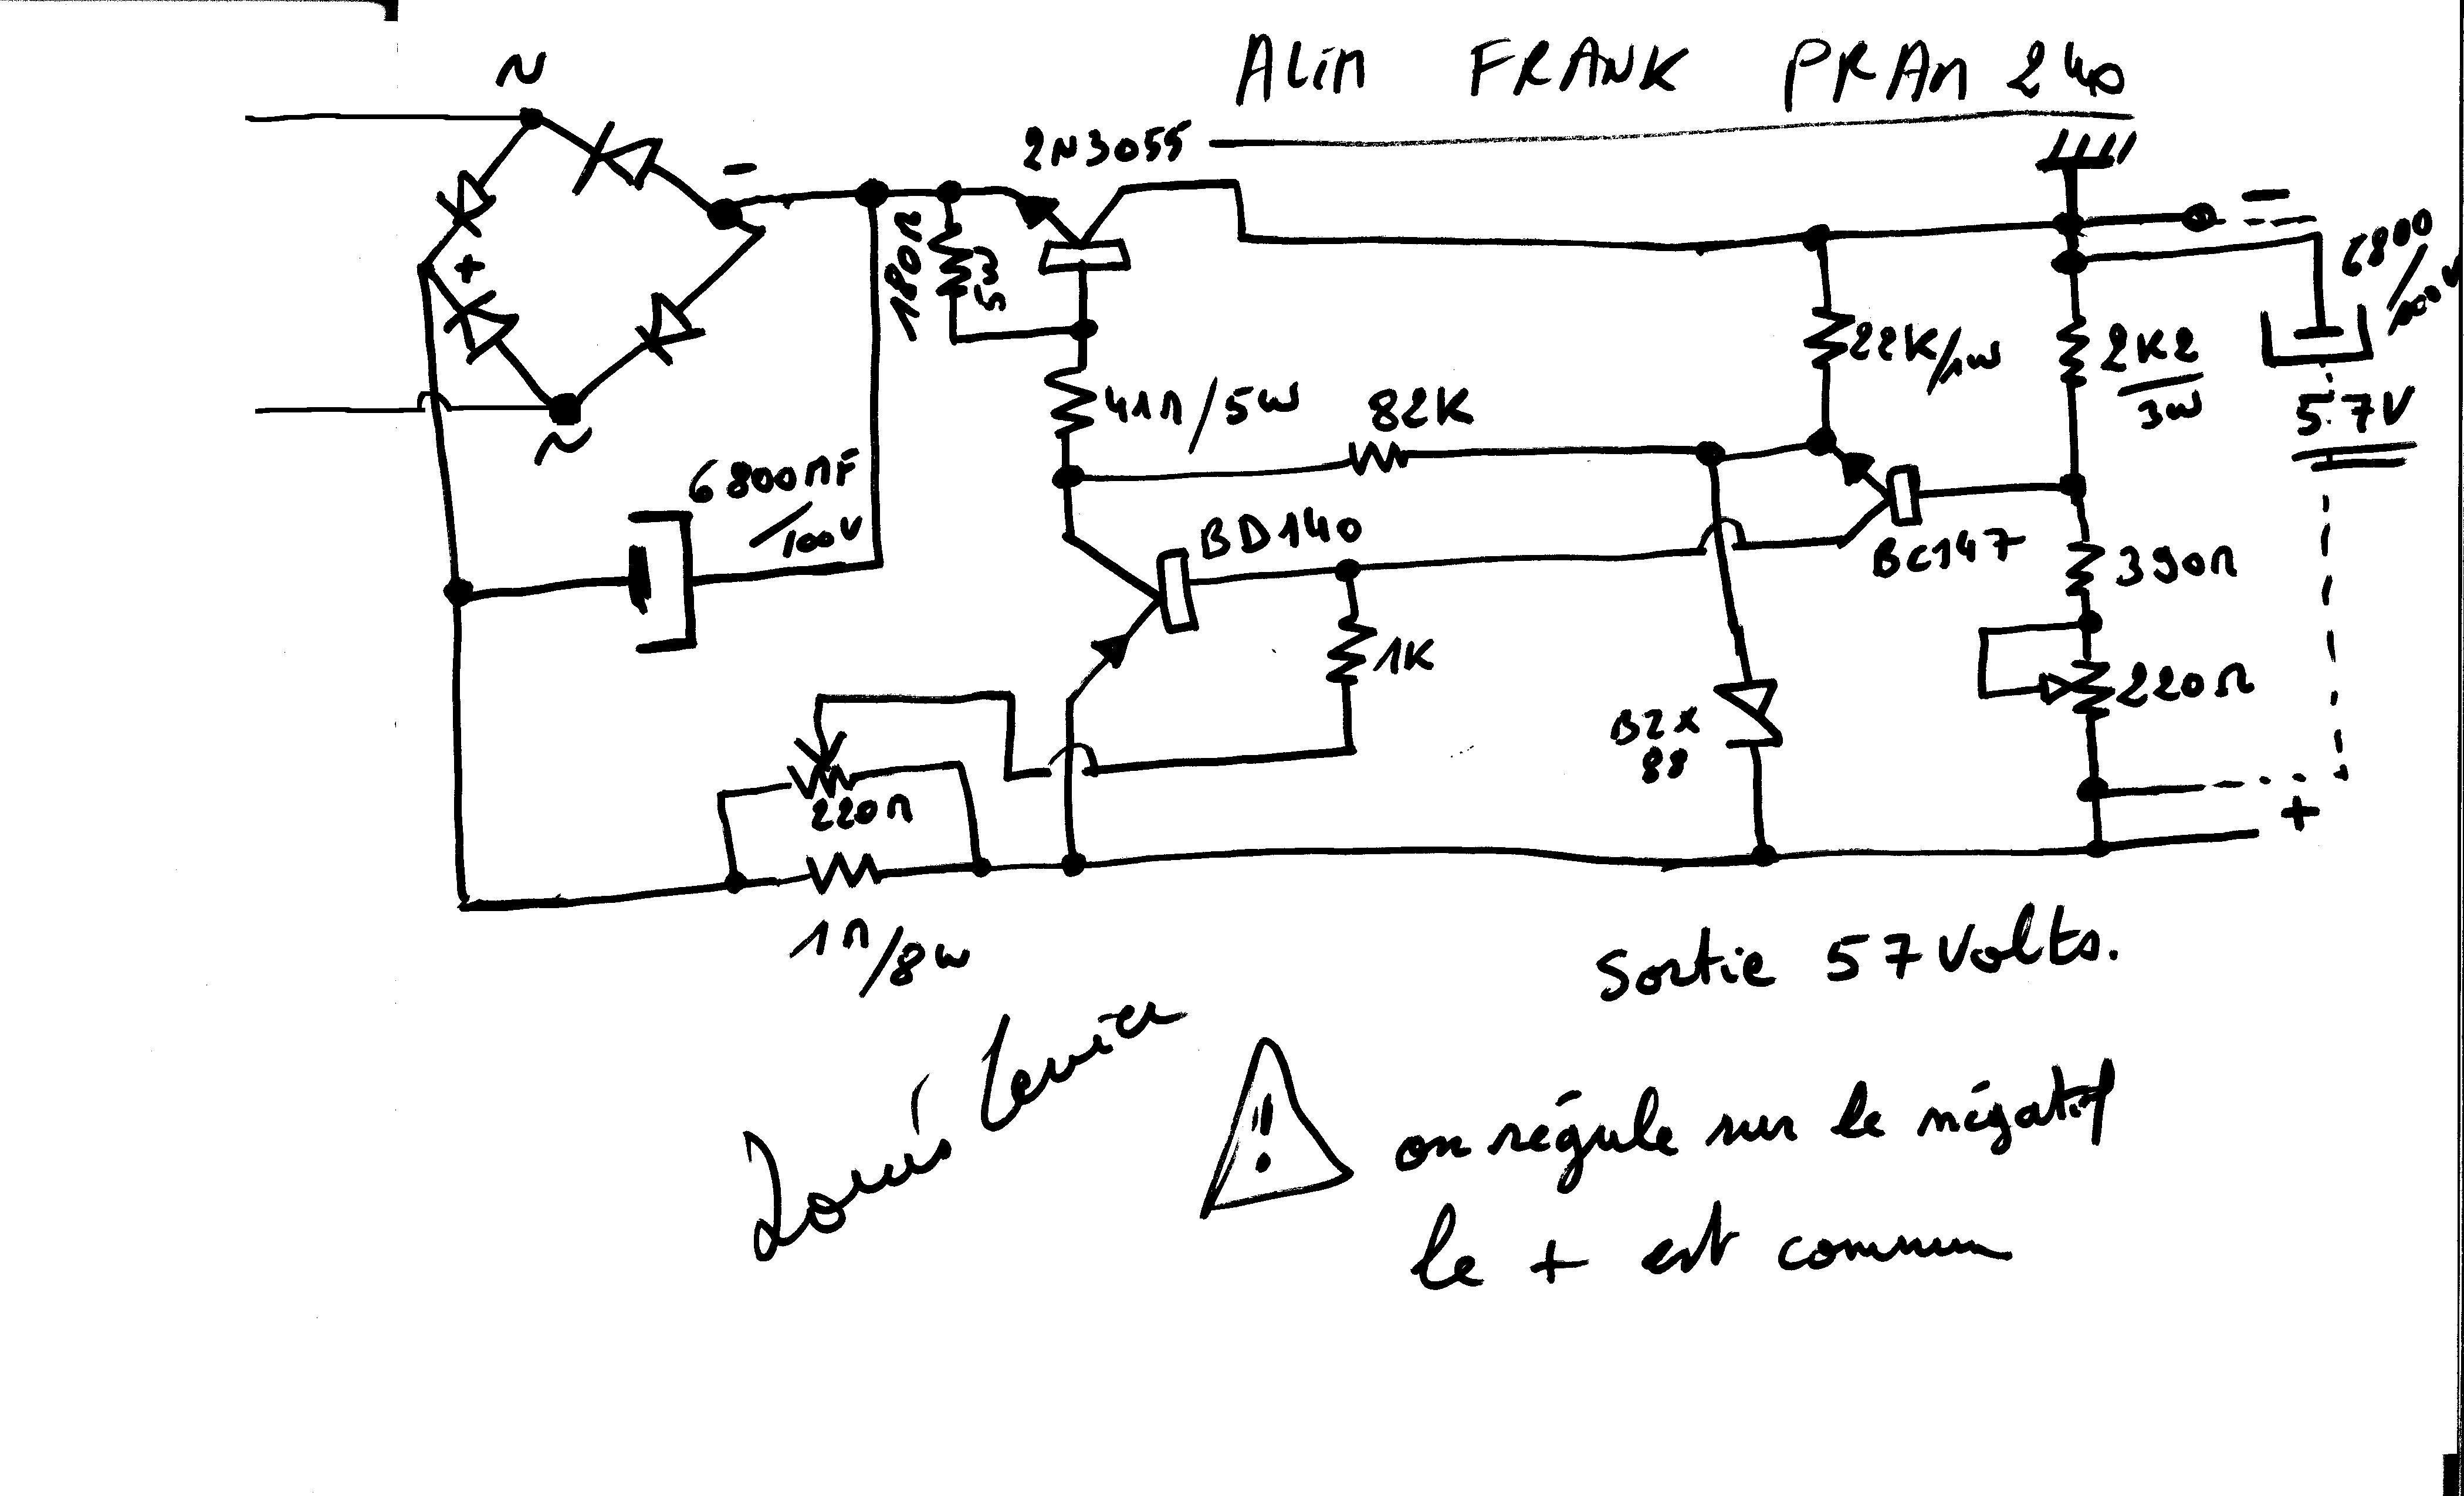 ALIM FRANK PRAM 240
~
-
2N3055
+
180Ω
3W
6800
/100V
22K/1W
2K2
3W
41Ω/5W
82K
57V
~
6800MF
/100V
BD140
BC147
390Ω
1K
220Ω
BZX
88
220Ω
+
1Ω/8W
Sortie 57 Volts.
!
on régule sur le négatif
le + est commun